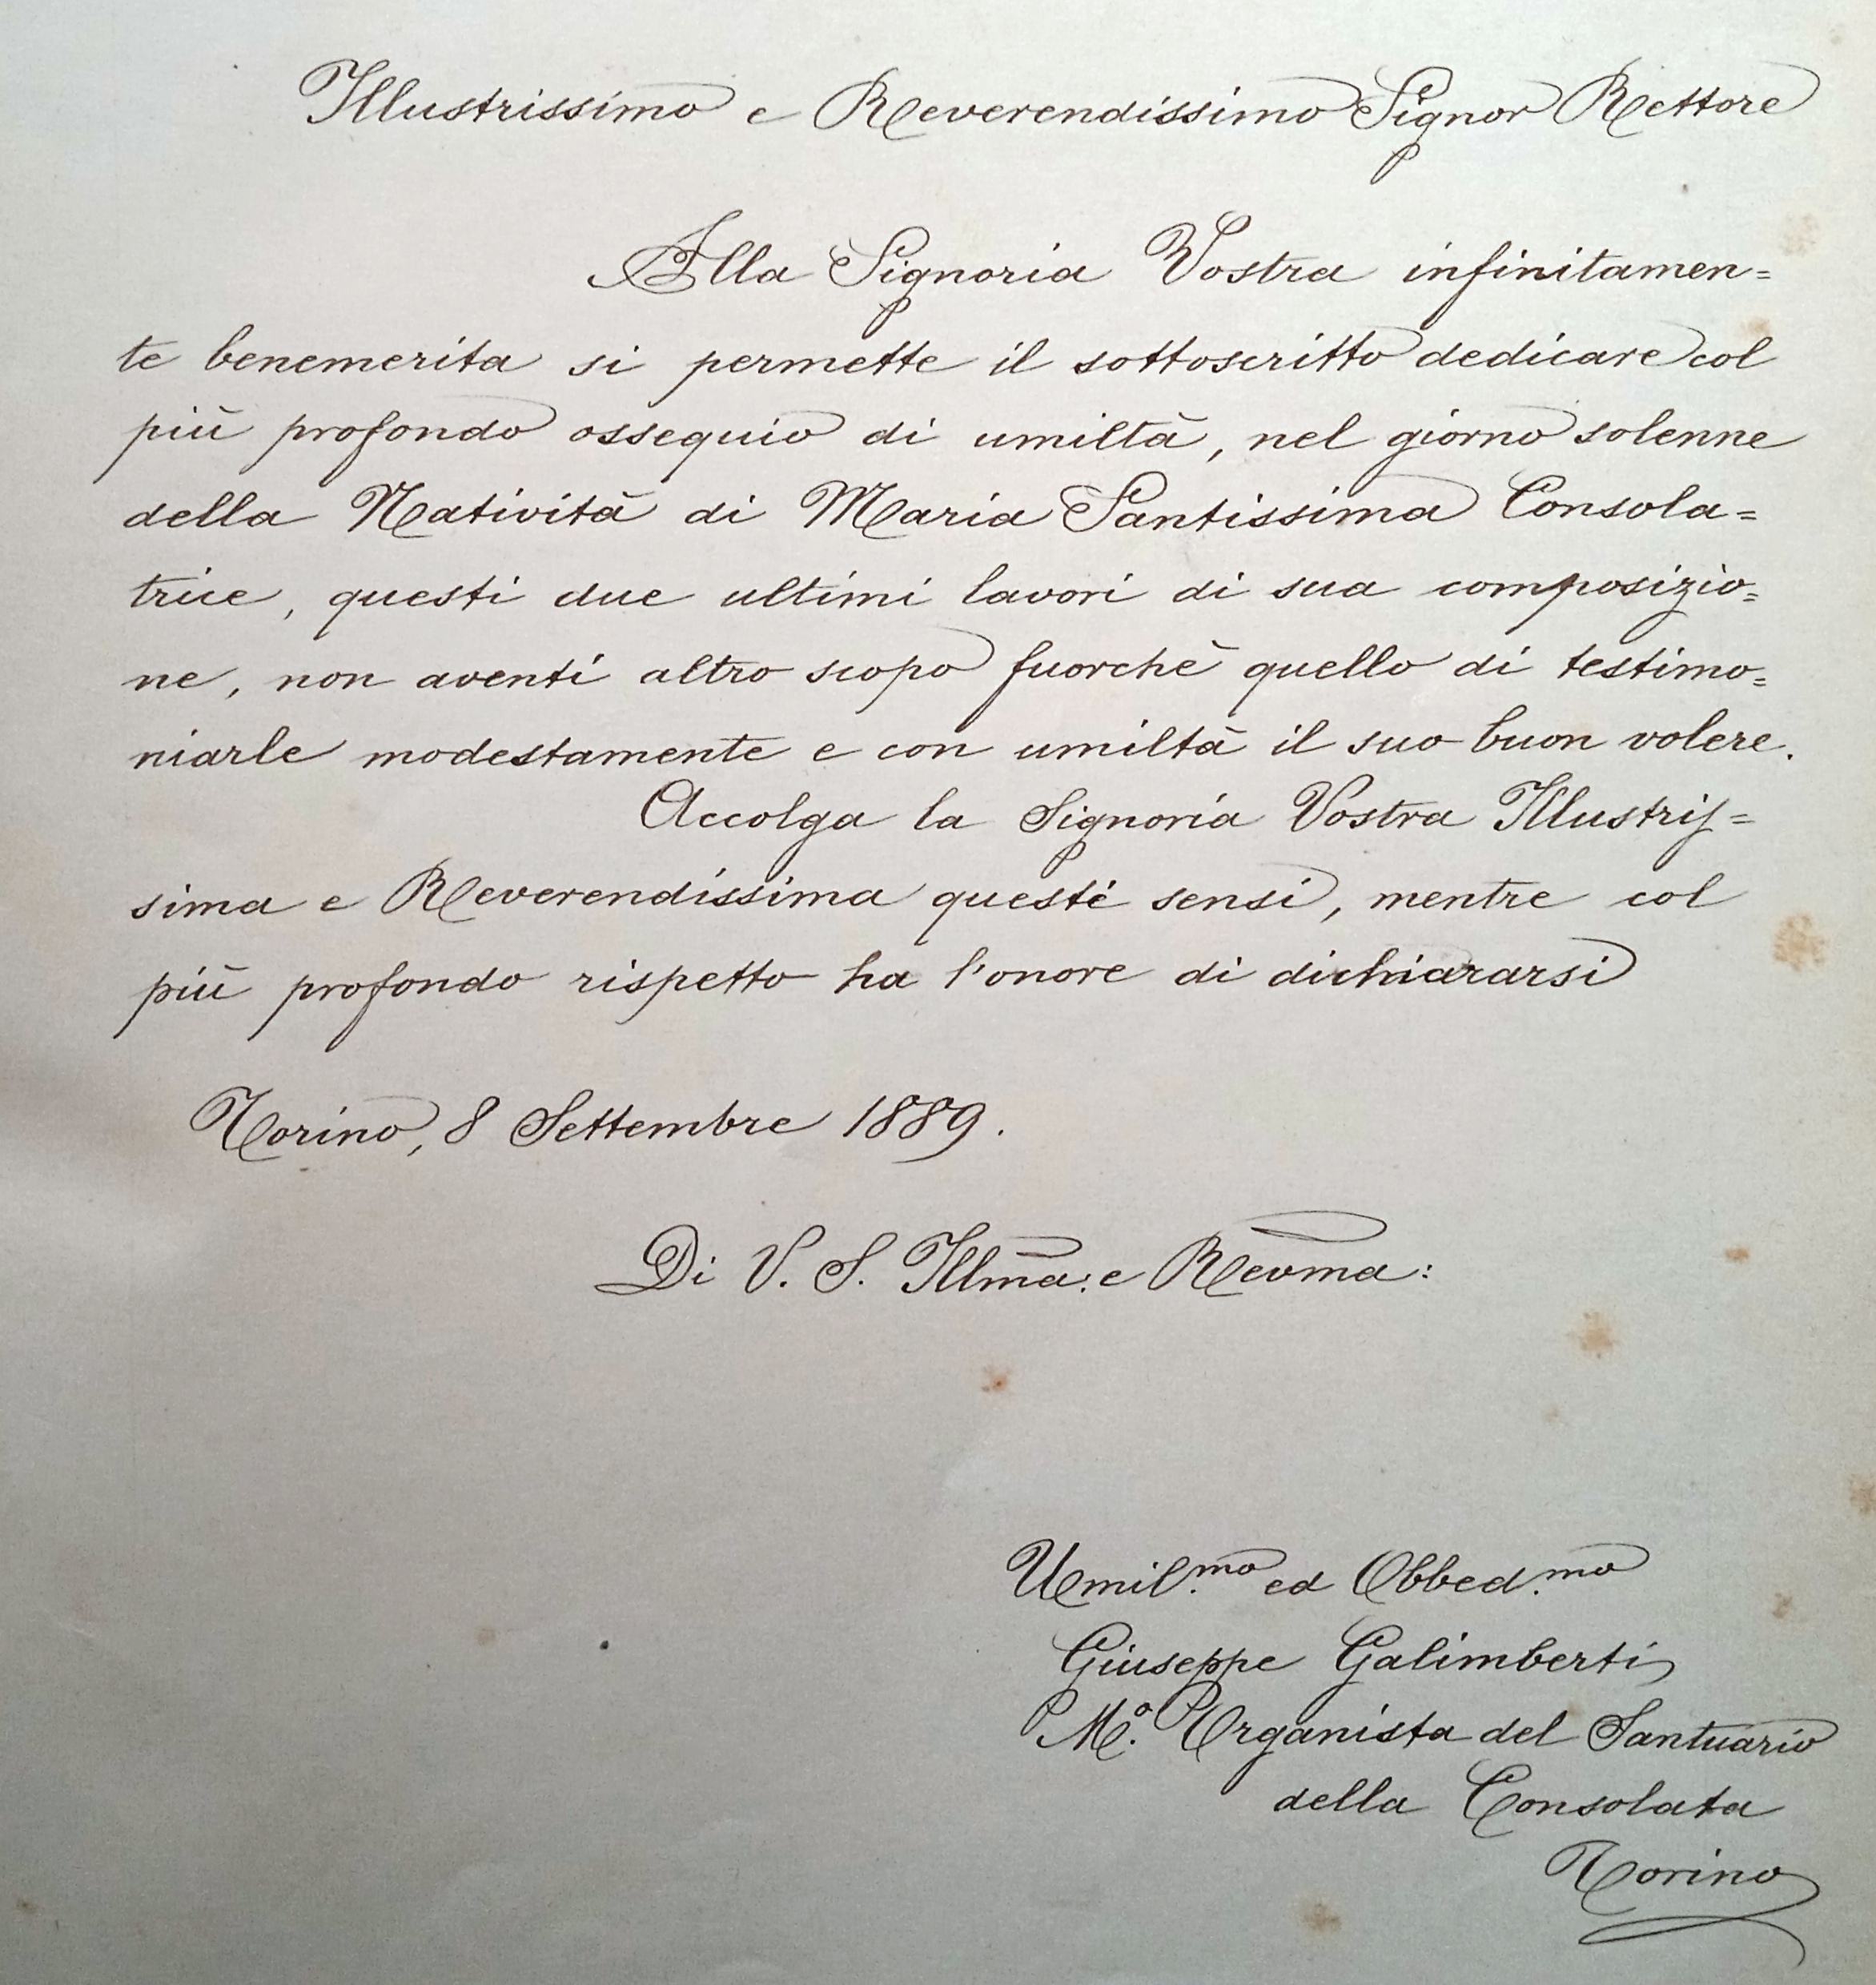 Illustrissimo e Reverendissimo Signor Rettore
Alla Signoria Vostra infinitamen=
te benemerita si permette il sottoscritto dedicare col
più profondo ossequio di umiltà, nel giorno solenne
della Natività di Maria Santissima Consola=
trice, questi due ultimi lavori di sua composizio=
ne, non aventi altro scopo fuorchè quello di testimo=
niarle modestamente e con umiltà il suo buon volere.
Accolga la Signoria Vostra Illustris=
sima e Reverendissima questi sensi, mentre col
più profondo rispetto ha l'onore di dichiararsi
Torino, 8 Settembre 1889.
Di V. S. Illma: e Revma:
Umil.mo ed Obbed.mo
Giuseppe Galimberti
M.o Organista del Santuario
della Consolata
Torino